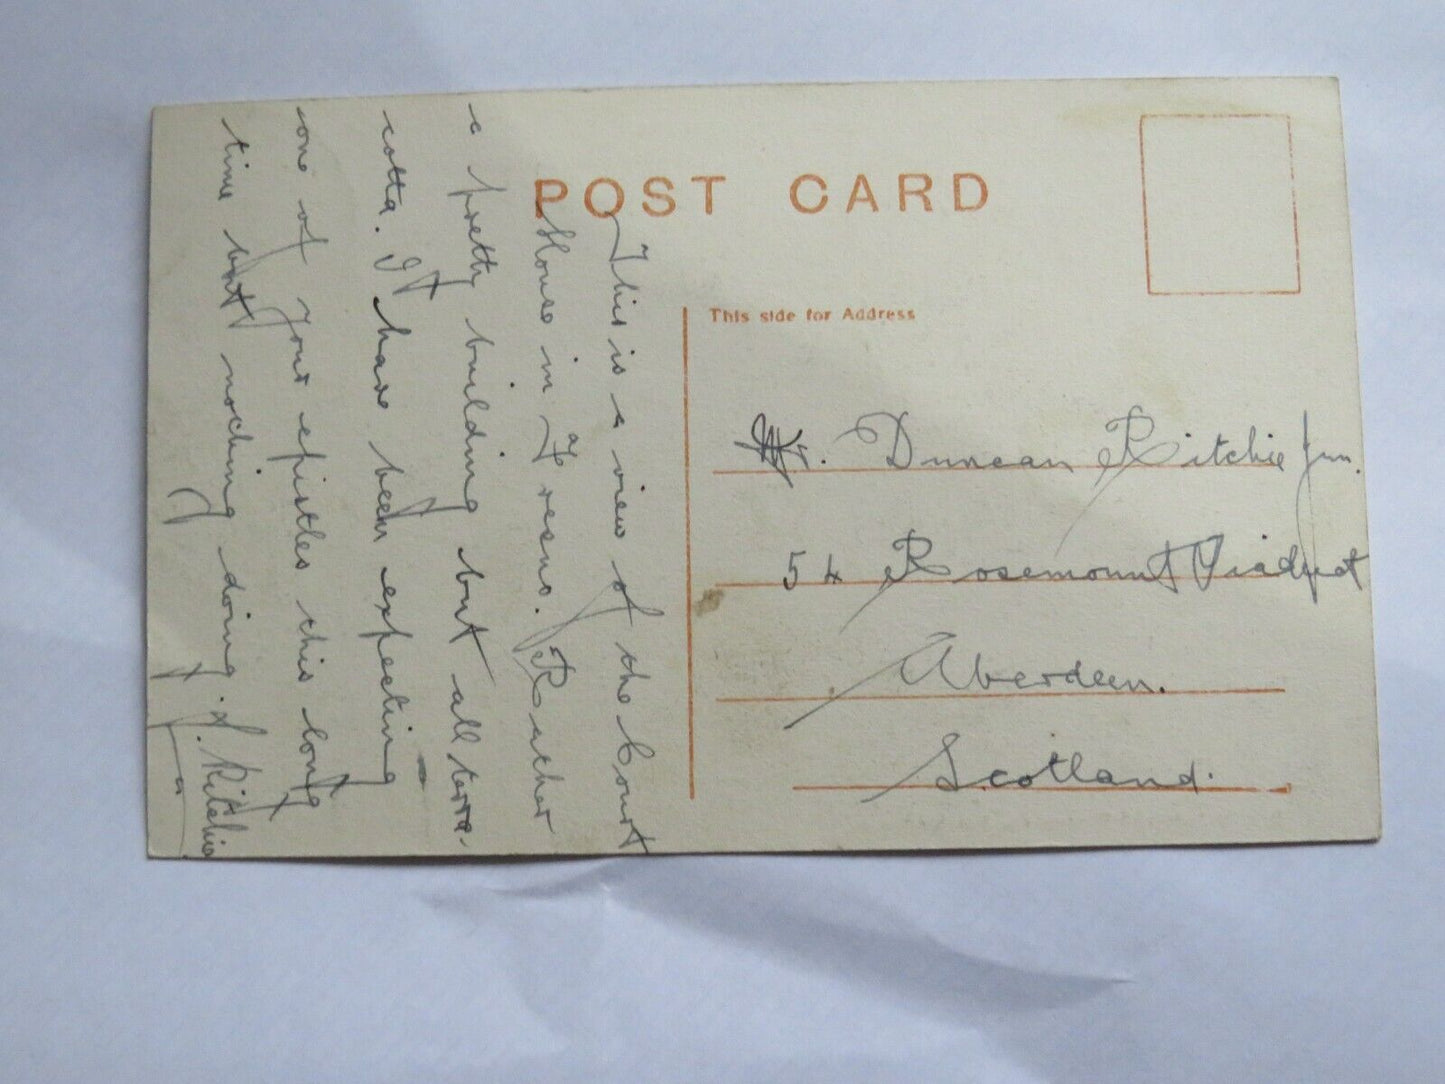 POST CARD
This side for Address
This is a view of the Court
House in Fresno. Rather
a pretty building but all terra-
cotta. I have been expecting
one of your epistles this long
time but nothing doing.
J. Ritchie
Mr. Duncan Ritchie Jun.
54 Rosemount Viaduct
Aberdeen.
Scotland.